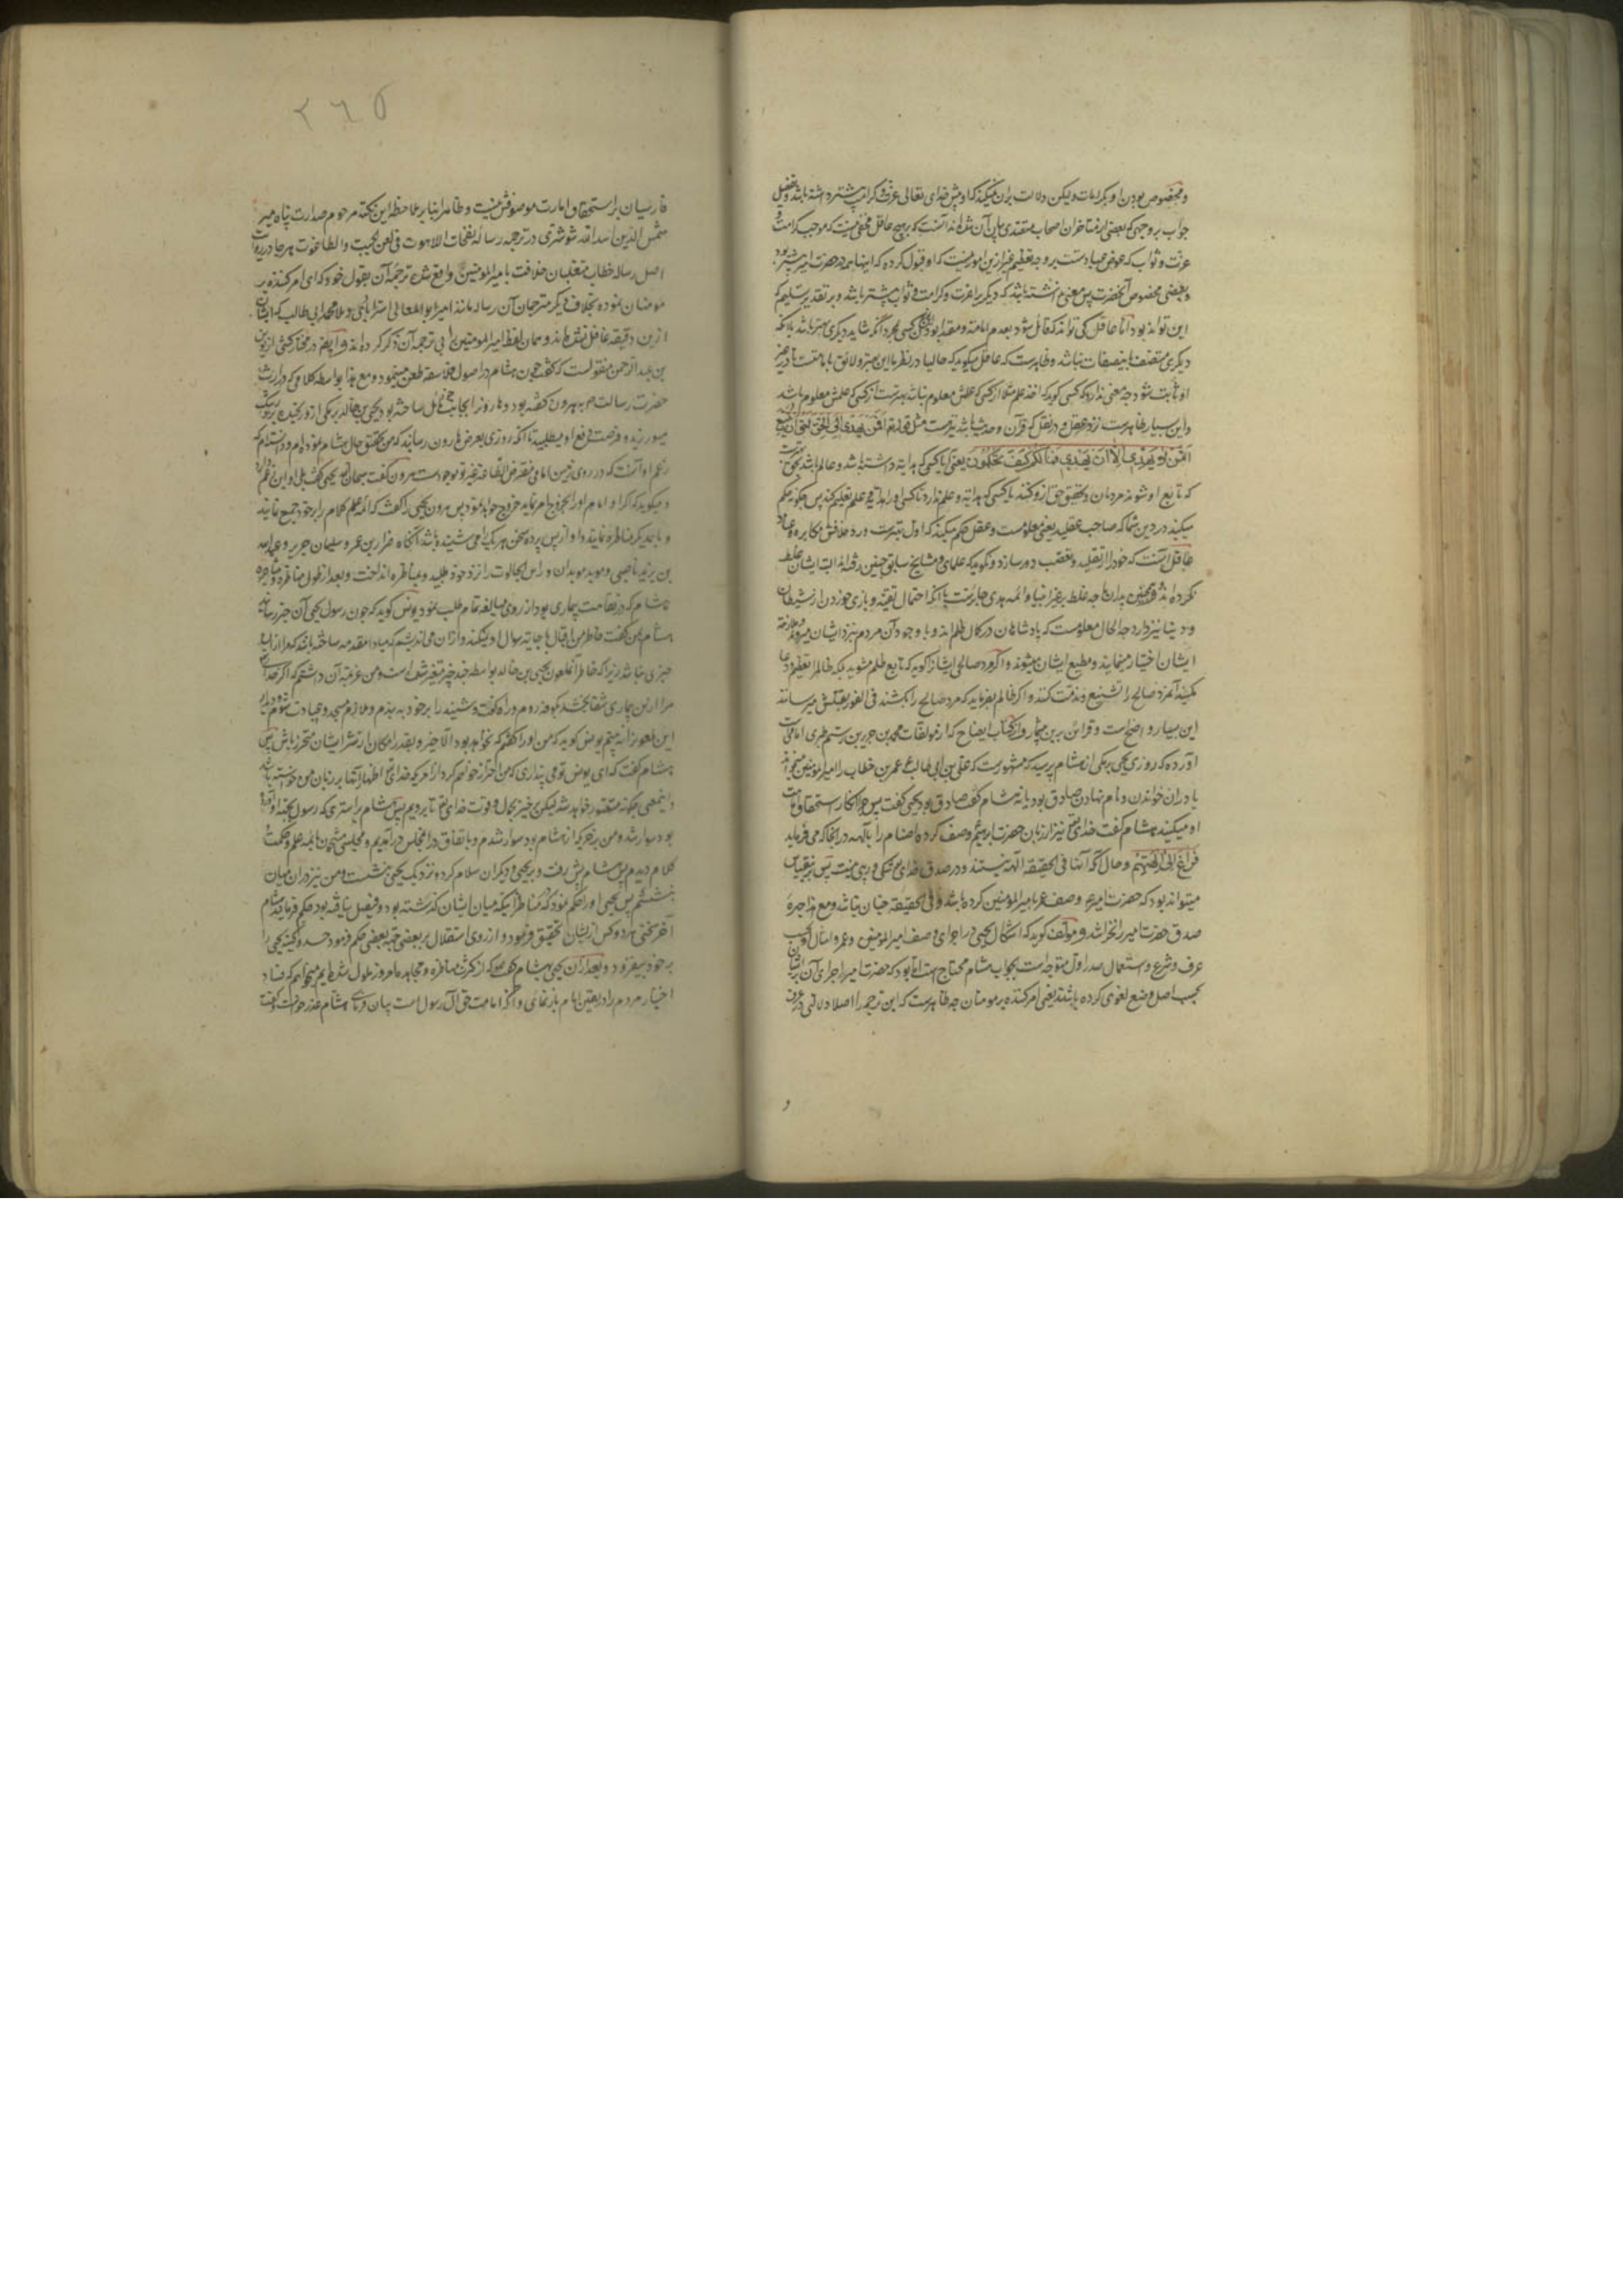 و مخصوص بودن او بکرامات ولیکن دلالت بران نمیکند که او پیش خدای تعالی عزت و کرامت بیشتر داشته باشد و تفضیل
جواب بر وجهی که بعضی از متاخران اصحاب متصدی آن شده‌اند آنست که بر هیچ عاقل مخفی نیست که موجب کرامت و
عزت و ثواب که عوض عبادتست بر وجه تعظیم غیر ازین امور نیست که او قبول کرده که اینها همه در حضرت امیر بیشتر بود
و بعضی مخصوص آنحضرت پس معنی نداشته باشد که دیگری را عزت و کرامت و ثواب بیشتر باشد و بر تقدیر تسلیم که
این تواند بود اما عاقل کی تواند که قائل شود بعدم امامت و مقتدا بودن کسی بمجرد آنکه شاید دیگری بهتر باشد با آنکه
دیگری متصف باینصفات نباشد و ظاهرست که عاقل میکوید که حالیا در نظر ما این بهتر و لائق بامامتست تا در غیر
او ثابت شود چه معنی ندارد که کسی کوید که اخذ علم مثلا از کسی که علمش معلوم نباشد بهترست از کسی که علمش معلوم باشد
و این بسیار ظاهرست نزد عقل و در نقل که قرآن و حدیث باشد نیز هست مثل قوله تع افمن یهدی الی الحق احق ان یتبع
امن لا یهدی الا ان یهدی فما لکم کیف تحکمون یعنی آیا کسی که هدایت داشته باشد و عالم باشد بحق
که تابع او شوند مردمان و تحقیق حق ازو کنند یا کسی که هدایت و علم ندارد تا کسی او را هدایت و علم تعلیم کند پس چکونه حکم
میکنید در دین شما که صاحب عقلید یعنی معلومست و عقل حکم میکند که اول بهترست و رد خلافش مکابره و عناد
عاقل آنست که خود را از تقلید و تعصب دور سازد و نکوید که علمای و مشایخ سابق چنین رفته‌اند البته ایشان غلط
نکرده‌اند و همچنین بدان چه غلط بر غیر انبیا و ائمه هدی جایزست با آنکه احتمال تقیه و بازی خوردن از شیطان
و دنیا نیز دارد چه الحال معلومست که پادشاهان در کمال ظلم‌اند و با وجود آن مردم نیز نزد ایشان میروند و ملازمت
ایشان اختیار مینمایند و مطیع ایشان میشوند و اگر مرد صالحی ایشانرا کوید که تابع ظلم مشوید بلکه ظالم را تعظیم و دعا
مکنید آنمرد صالح را تشنیع و مذمت کنند و اکر ظالم بفرماید که مرد صالح را بکشند فی الفور بقتلش میرسانند
این بسیار واضح است و قرائن برین بیشمار و در کتاب ایضاح که از مولفات محمد بن جریر بن رستم طبری امامی است
آورده که روزی یحیی برمکی از هشام پرسید که مشهورست که علی بن ابی طالب ع عمر بن خطاب را امیر المومنین میخواند
یا دران خواندن و نام نهادن صادق بود یا نه هشام کفت صادق بود یحیی کفت پس چرا انکار استحقاق امامت
او میکنید هشام کفت خدای تع نیز از زبان حضرت ابراهیم وصف کرده اصنام را بآلهه در انجا که می فرماید
فراغ الی الهتهم و حال آنکه آنها فی الحقیقه آلهه نیستند و در صدق خدای شکی و ریبی نیست پس برین قیاس
میتواند بود که حضرت امیر ع وصف عمر بامیر المومنین کرده باشد و فی الحقیقه چنان نباشد و مع هذا چیزی
صدق حضرت امیر را نخراشد و مولف کوید که اشکال یحیی در اجرای وصف امیر المومنین و عمر و امثال او بحسب
عرف و شرع و استعمال صدر اول متوجه است و بجواب هشام محتاج است اما بود که حضرت امیر اجرای آن بر ایشان
بحسب اصل وضع لغوی کرده باشند یعنی امر کننده بر مومنان چه ظاهرست که این ترجمه را اصلا دلالتی در عرف
و
۲۶۵
فارسیان بر استحقاق امارت موصوفش نیست و ظاهرا بنا بر ملاحظه این نکته مرحوم صدارت پناه میر
شمس الدین اسد الله شوشتری در ترجمه رساله نفحات اللاهوت فی لعن الجبت و الطاغوت هر جا در روایت
اصل رساله خطاب متغلبان خلافت بامیر المومنین واقع شده ترجمه آن بقول خود که ای امر کننده بر
مومنان نموده بخلاف دیگر مترجمان آن رساله مانند امیر ابو المعالی استرابادی و ملا محمد ابی طالب که ایشان
ازین دقیقه غافل شده‌اند و همان لفظ امیر المومنین را بی ترجمه آن ذکر کرده‌اند و ایضا در مختار کشی از یونس
بن عبد الرحمن منقولست که کفت چون هشام در اصول فلاسفه طعن مینمود و مع هذا بواسطه کلامی که در ارث
حضرت رسالت ص بهرون کفته بود و هارون را بجانب خود مایل ساخته بود یحیی بن خالد برمکی ازو رنجیده برو رشک
میورزید و فرصت دفع او میطلبید تا آنکه روزی بعرض هارون رسانید که من تحقیق حال هشام نموده‌ام و دانسته‌ام که
زعم او آنست که در روی زمین امامی مفترض الطاعه غیر تو موجود است هرون کفت سبحان الله یحیی کفت بلی او این زعم دارد
و میکوید که اکر او امام او را بخروج امر نماید خروج خواهد نمود پس هرون یحیی را کفت که ائمه علم کلام را برخود جمع نماید
و با یکدیکر مناظره نمایند و او از پس پرده سخن هریک را می شنیده باشد آنگاه ضرار بن عمرو و سلیمان جریر و عبد الله
بن یزید ناصبی و موبد موبدان و راس الجالوت را نزد خود طلبید و بمناظره انداخت و بعد از طول مناظره و مشاجره
هشام که در نقاهت بیماری بود از روی مبالغه تمام طلب نمود یونس کوید که چون رسول یحیی آن خبر رسانید
هشام بمن کفت خاطر من اقبال باجابت سوال او نمیکند و از آن می اندیشم که مبادا مقدمه ساخته باشد که مرا ازان
خبری نباشد زیرا که خاطر آن ملعون یحیی بن خالد بواسطه چند چیز متغیر شده است و من عزیمت آن داشتم که اکر خدا
مرا ازین بیماری شفا بخشد بکوفه روم و راه کفت و شنید را برخود به بندم و ملازم مسجد و عبادت شوم تا دیدار
این ملعونرا نه بینم یونس کوید که من او را کفتم که نخواهد بود الا خیر و بقدر امکان از شر ایشان محترز باش پس
هشام کفت که ای یونس تو می پنداری که من احتراز خواهم کرد از امری که خدای تع اظهار آنرا بر زبان من خواسته باشد
و اینمعنی چکونه متصور خواهد شد لیکن برخیز بحول و قوت خدای تع تا برویم پس هشام بر استری که رسول یحیی آورده
بود سوار شد و من بر خری که از هشام بود سوار شدم و باتفاق در مجلس در آمدیم و مجلسی مشحون بائمه علم و حکمت
کلام دیدیم پس هشام پیش رفت و بر یحیی و دیگران سلام کرده نزدیک یحیی بنشست و من نیز در ان میان
بنشستم پس یحیی او را حکم نمود که مناظراتیکه میان ایشان گذشته بود و فیصل نیافته بود حکم فرماید هشام
آخر سخنی هر دو کس از یشان تحقیق فرمود و از روی استقلال بر بعضی جهت بعضی حکم فرمود حسد و کینه یحیی را
برخود بیفزود و بعد از آن یحیی بهشام کفت که از کثرت مناظره و مجادله ما امروز ملول شده‌ایم میخواهم که فساد
اختیار مردم را در تعیین امام باز نمائی و آنکه امامت حق آل رسول است بیان فرمائی هشام عذر خواست و کفت